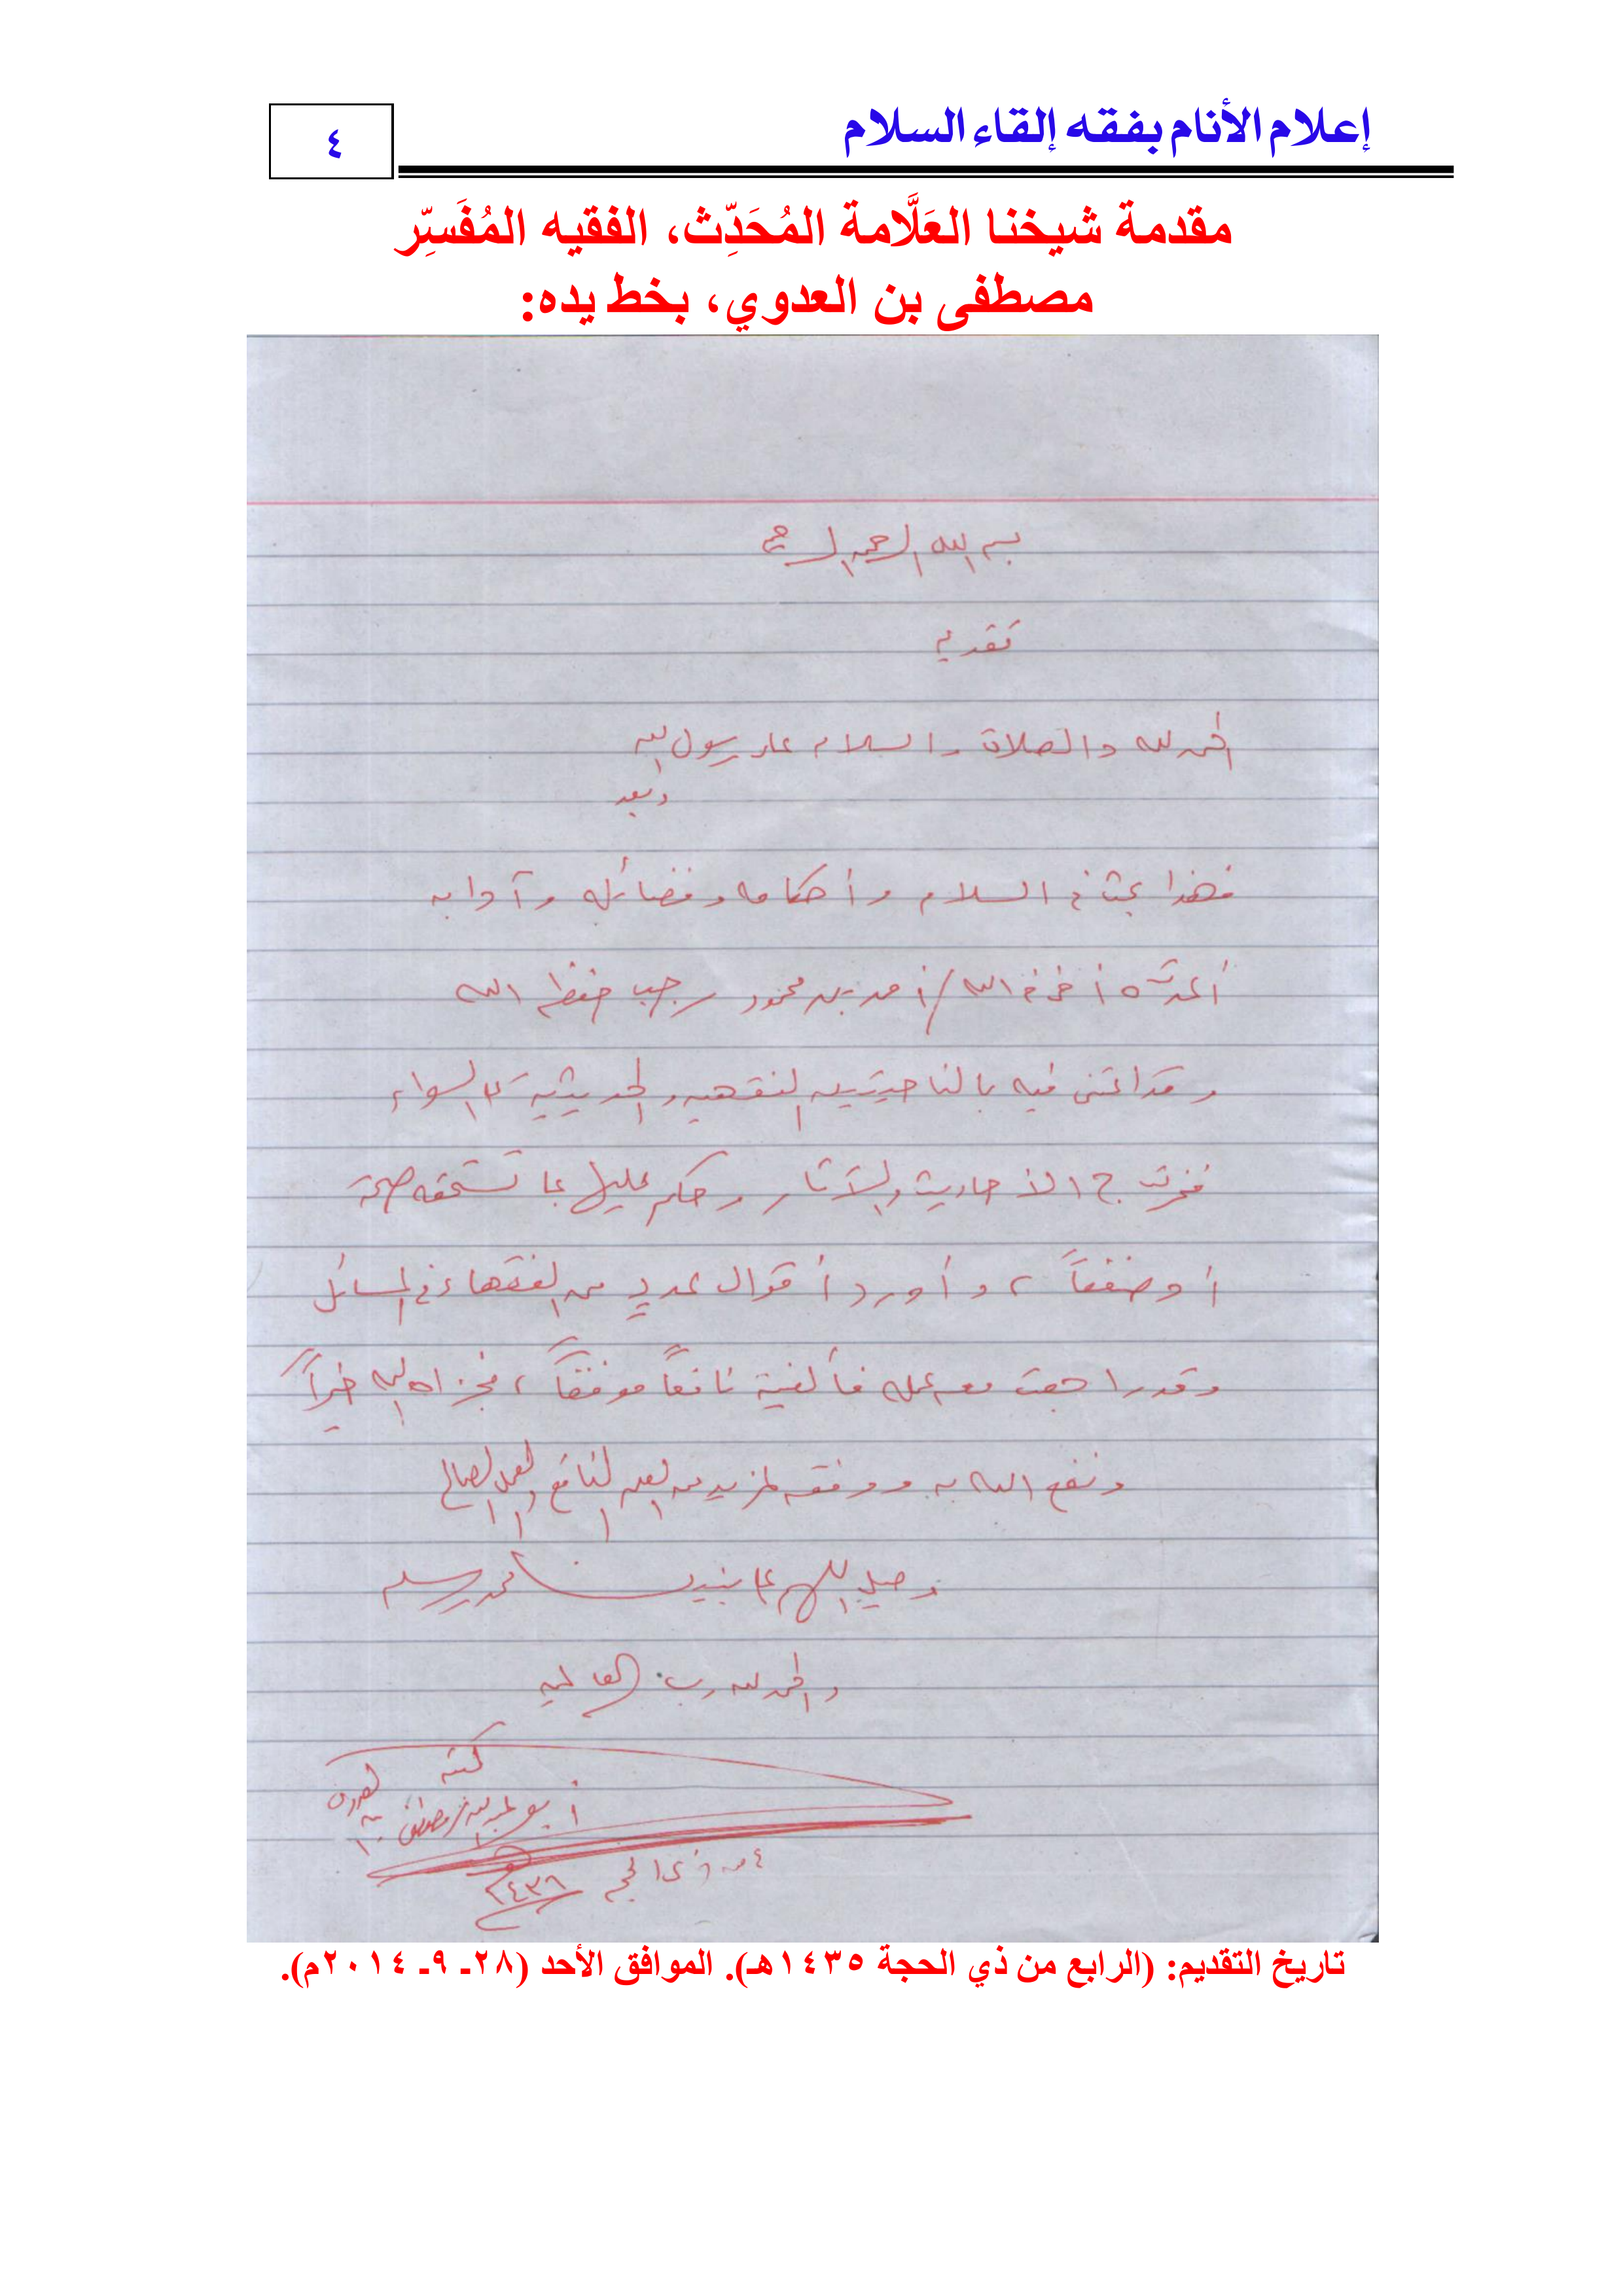 إعلام الأنام بفقه إلقاء السلام
٤
مقدمة شيخنا العَلَّامة المُحَدِّث، الفقيه المُفَسِّر
مصطفى بن العدوي، بخط يده:
بسم الله الرحمن الرحيم
تقديم
الحمد لله والصلاة والسلام على رسول الله
وبعد
فهذا بحث في السلام وأحكامه وفضائله وآدابه
أعدّه أخي في الله / أحمد بن محمود رجب حفظه الله
وقد اعتنى فيه بالناحيتين الفقهيه والحديثية على السواء
فخرّج الأحاديث والآثار وحكم عليها بما تستحقه صحة
أو ضعفاً، وأورد أقوال عددٍ من الفقهاء في المسائل
وقد راجعت معه عمله فألفيته نافعاً موفقاً، فجزاه الله خيراً
ونفع الله به ووفقه لمزيد من العلم النافع والعمل الصالح
وصلِ اللهم على نبينا محمد وسلم
والحمد لله رب العالمين
كتبه
أبو عبد الله / مصطفى بن العدوى
٤ من ذى الحجة
تاريخ التقديم: (الرابع من ذي الحجة ١٤٣٥هـ). الموافق الأحد (٢٨ـ ٩ـ ٢٠١٤م).